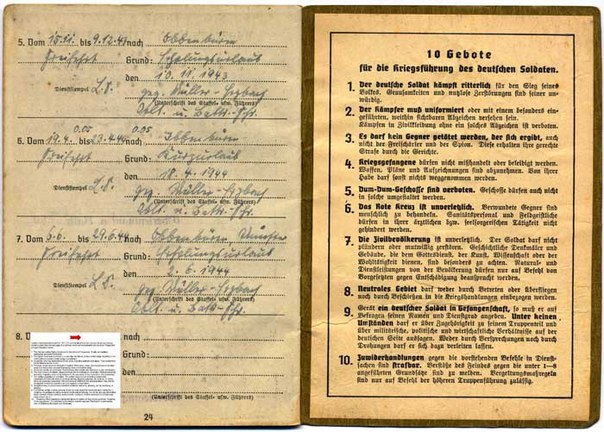 5. Vom 15.11. bis 9.12.43 nach Ibbenbüren
Freifahrt Grund: Erholungsurlaub
den 10.11.1943
Dienststempel L.S. gez. Müller-
(Unterschrift des Staffel- usw. Führers)
Oblt. u. Battr.-Fhr.
6. Vom 19.4. 0.05 bis 23.4.44 0.05 nach Ibbenbüren
Freifahrt Grund: Kurzurlaub
den 18.4.1944
Dienststempel L.S. gez. Müller-
(Unterschrift des Staffel- usw. Führers)
Oblt. u. Battr.-Fhr.
7. Vom 5.6. bis 29.6.44 nach Ibbenbüren Münster
Freifahrt Grund: Erholungsurlaub
den 2.6.1944
Dienststempel L.S. gez. Müller-
(Unterschrift des Staffel- usw. Führers)
Oblt. u. Battr.-Fhr.
8.
Grund:
den
(Unterschrift des Staffel- usw. Führers)
24
10 Gebote
für die Kriegsführung des deutschen Soldaten.
1. Der deutsche Soldat kämpft ritterlich für den Sieg seines
Volkes. Grausamkeiten und nutzlose Zerstörungen sind seiner un-
würdig.
2. Der Kämpfer muß uniformiert oder mit einem besonders ein-
geführten, weithin sichtbaren Abzeichen versehen sein.
Kämpfen in Zivilkleidung ohne ein solches Abzeichen ist verboten.
3. Es darf kein Gegner getötet werden, der sich ergibt, auch
nicht der Freischärler und der Spion. Diese erhalten ihre gerechte
Strafe durch die Gerichte.
4. Kriegsgefangene dürfen nicht mißhandelt oder beleidigt werden.
Waffen, Pläne und Aufzeichnungen sind abzunehmen. Von ihrer
Habe darf sonst nichts weggenommen werden.
5. Dum-Dum-Geschosse sind verboten. Geschosse dürfen auch nicht
in solche umgestaltet werden.
6. Das Rote Kreuz ist unverletzlich. Verwundete Gegner sind
menschlich zu behandeln. Sanitätspersonal und Feldgeistliche
dürfen in ihrer ärztlichen bzw. seelsorgerischen Tätigkeit nicht
gehindert werden.
7. Die Zivilbevölkerung ist unverletzlich. Der Soldat darf nicht
plündern oder mutwillig zerstören. Geschichtliche Denkmäler und
Gebäude, die dem Gottesdienst, der Kunst, Wissenschaft oder der
Wohltätigkeit dienen, sind besonders zu achten. Natural- und
Dienstleistungen von der Bevölkerung dürfen nur auf Befehl von
Vorgesetzten gegen Entschädigung beansprucht werden.
8. Neutrales Gebiet darf weder durch Betreten oder Überfliegen
noch durch Beschießen in die Kriegshandlungen einbezogen werden.
9. Gerät ein deutscher Soldat in Gefangenschaft, so muß er auf
Befragen seinen Namen und Dienstgrad angeben. Unter keinen
Umständen darf er über Zugehörigkeit zu seinem Truppenteil und
über militärische, politische und wirtschaftliche Verhältnisse auf der
deutschen Seite aussagen. Weder durch Versprechungen noch durch
Drohungen darf er sich dazu verleiten lassen.
10. Zuwiderhandlungen gegen die vorstehenden Befehle in Dienst-
sachen sind strafbar. Verstöße des Feindes gegen die unter 1—8
angeführten Grundsätze sind zu melden. Vergeltungsmaßregeln
sind nur auf Befehl der höheren Truppenführung zulässig.